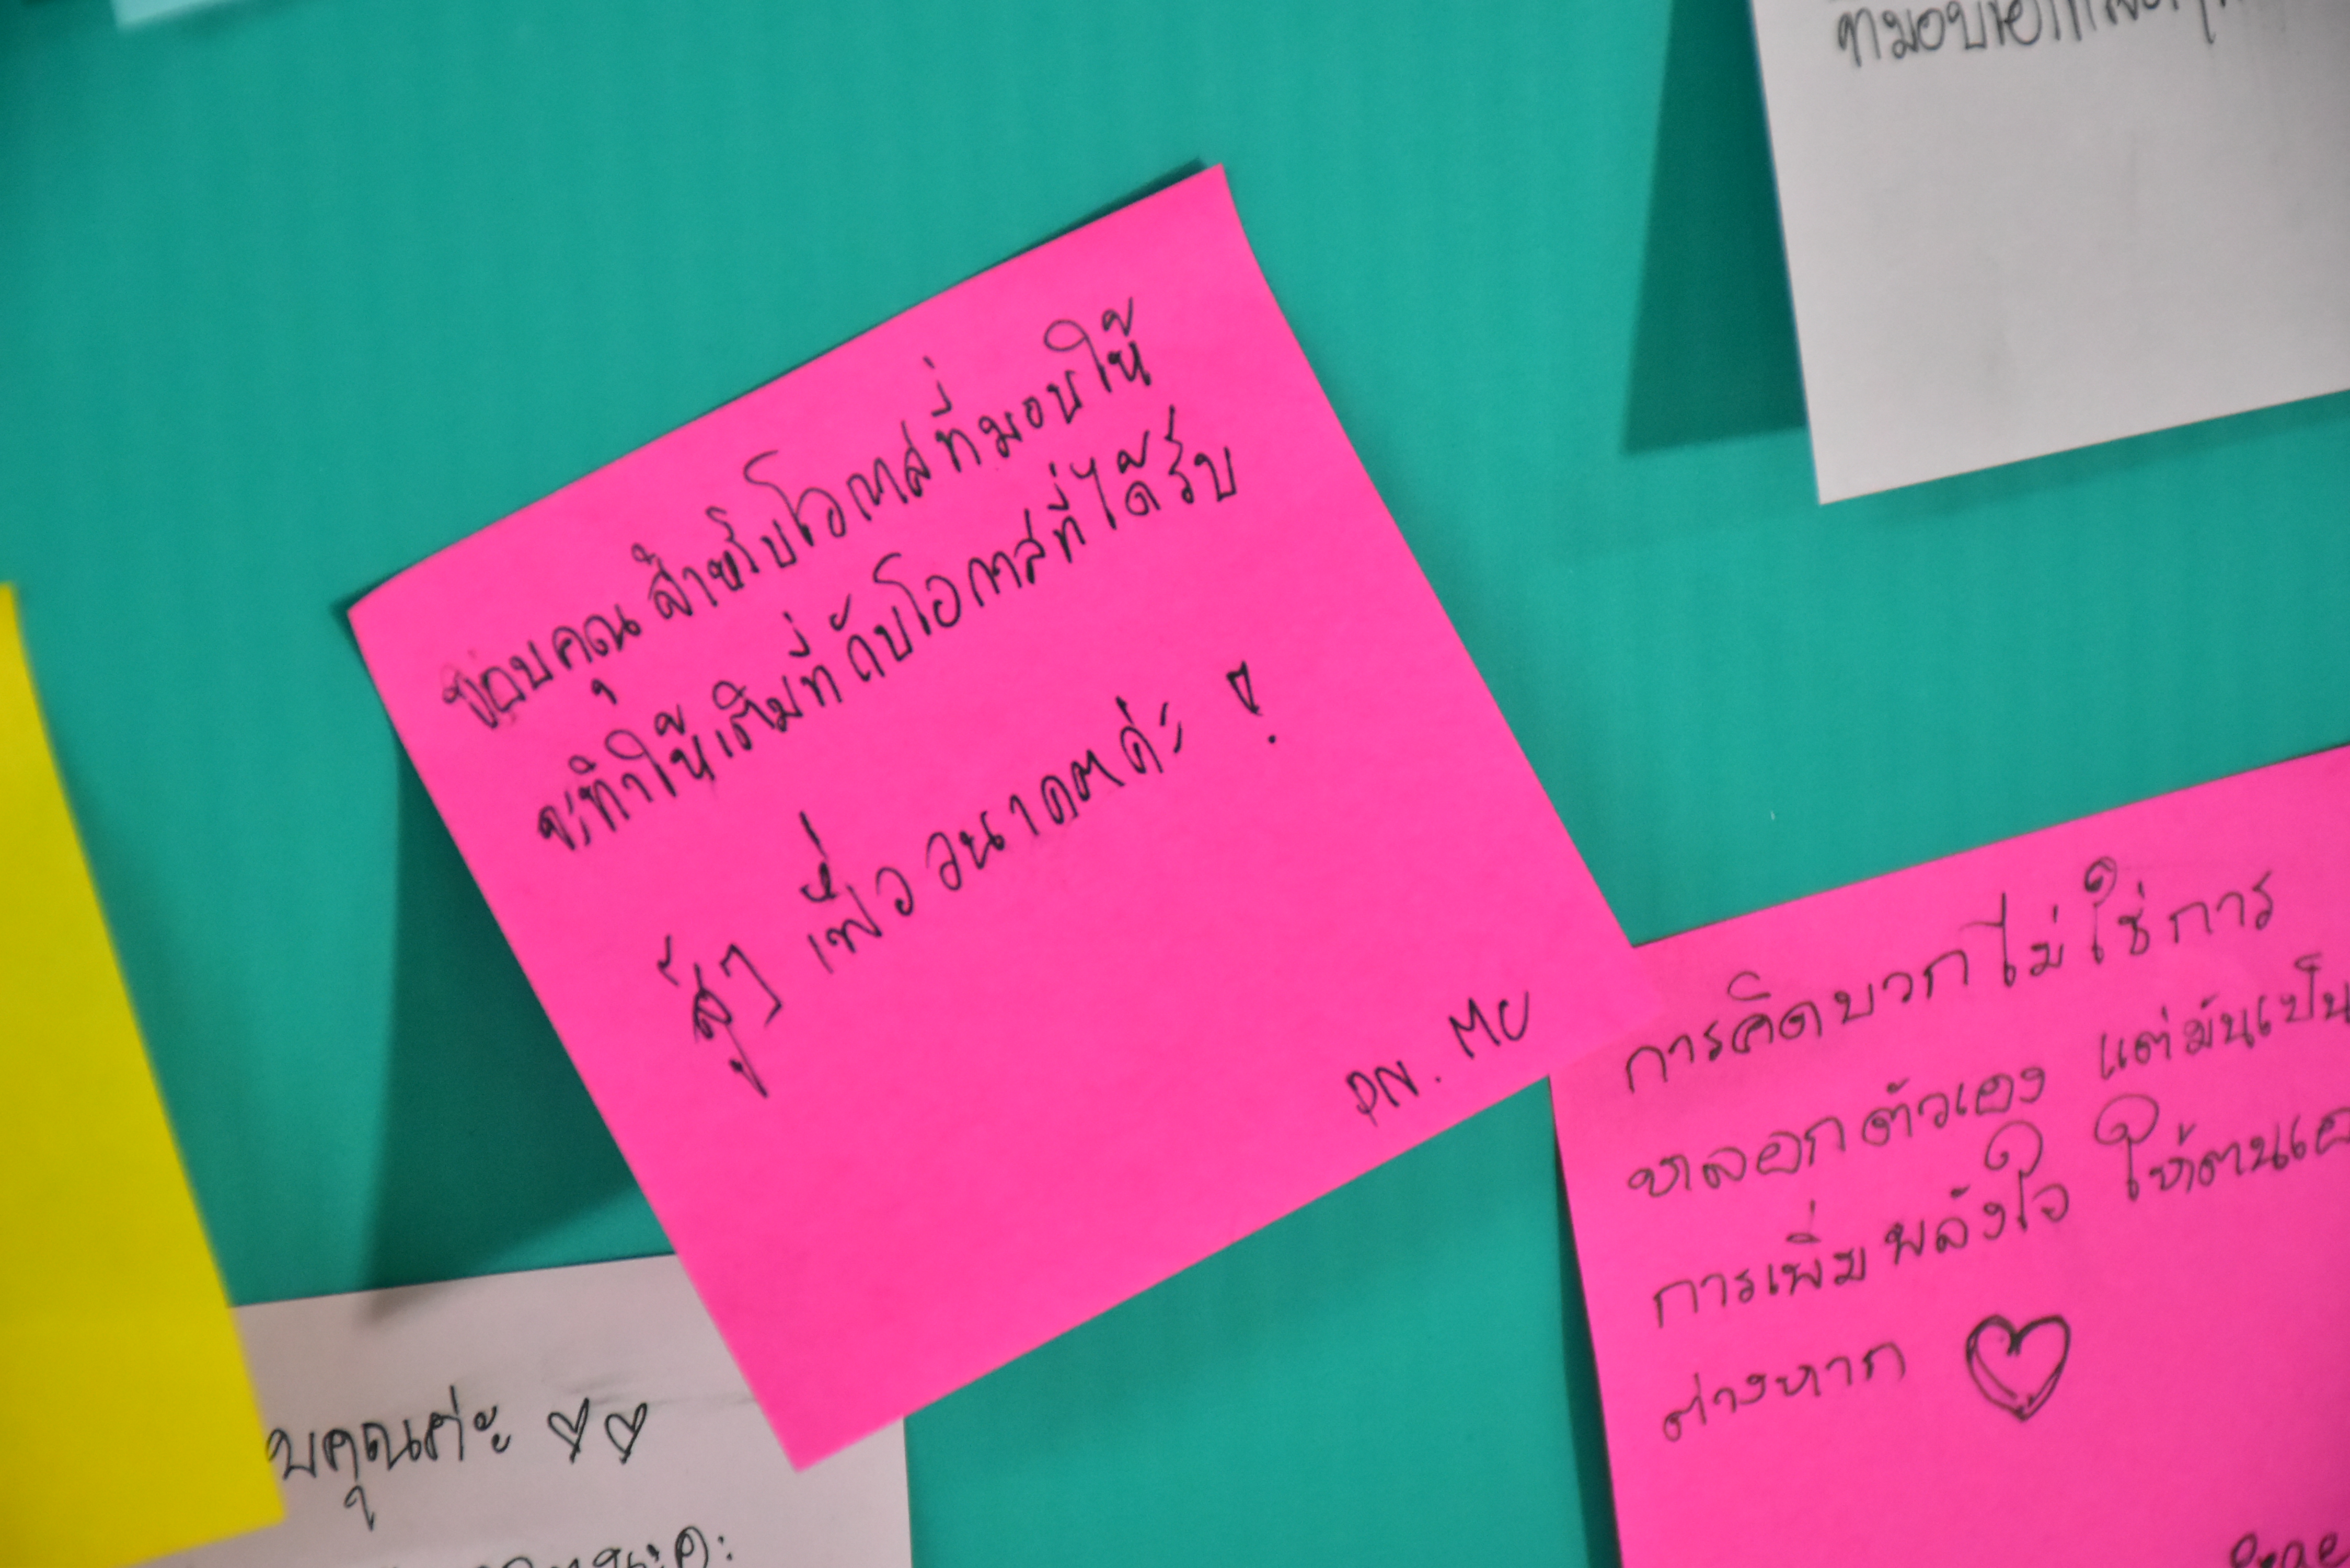 ขอบคุณ สำหรับโอกาสที่มอบให้
จะทำให้เต็มที่ กับโอกาสที่ได้รับ
สู้ๆ เพื่ออนาคตค่ะ !
PN. MU
การคิดบวกไม่ใช่การ
หลอกตัวเอง แต่มันเป็น
การเพิ่มพลังใจ ให้ตนเอ
ต่างหาก
บคุณค่ะ